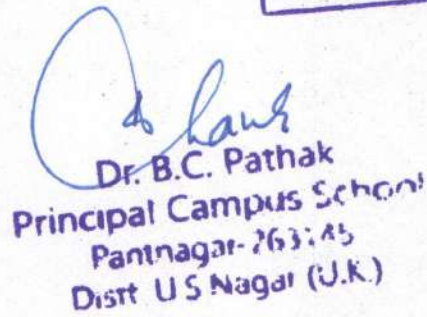 Dr. B.C. Pathak
Principal Campus School
Pantnagar-263145
Distt U S Nagar (U.K.)